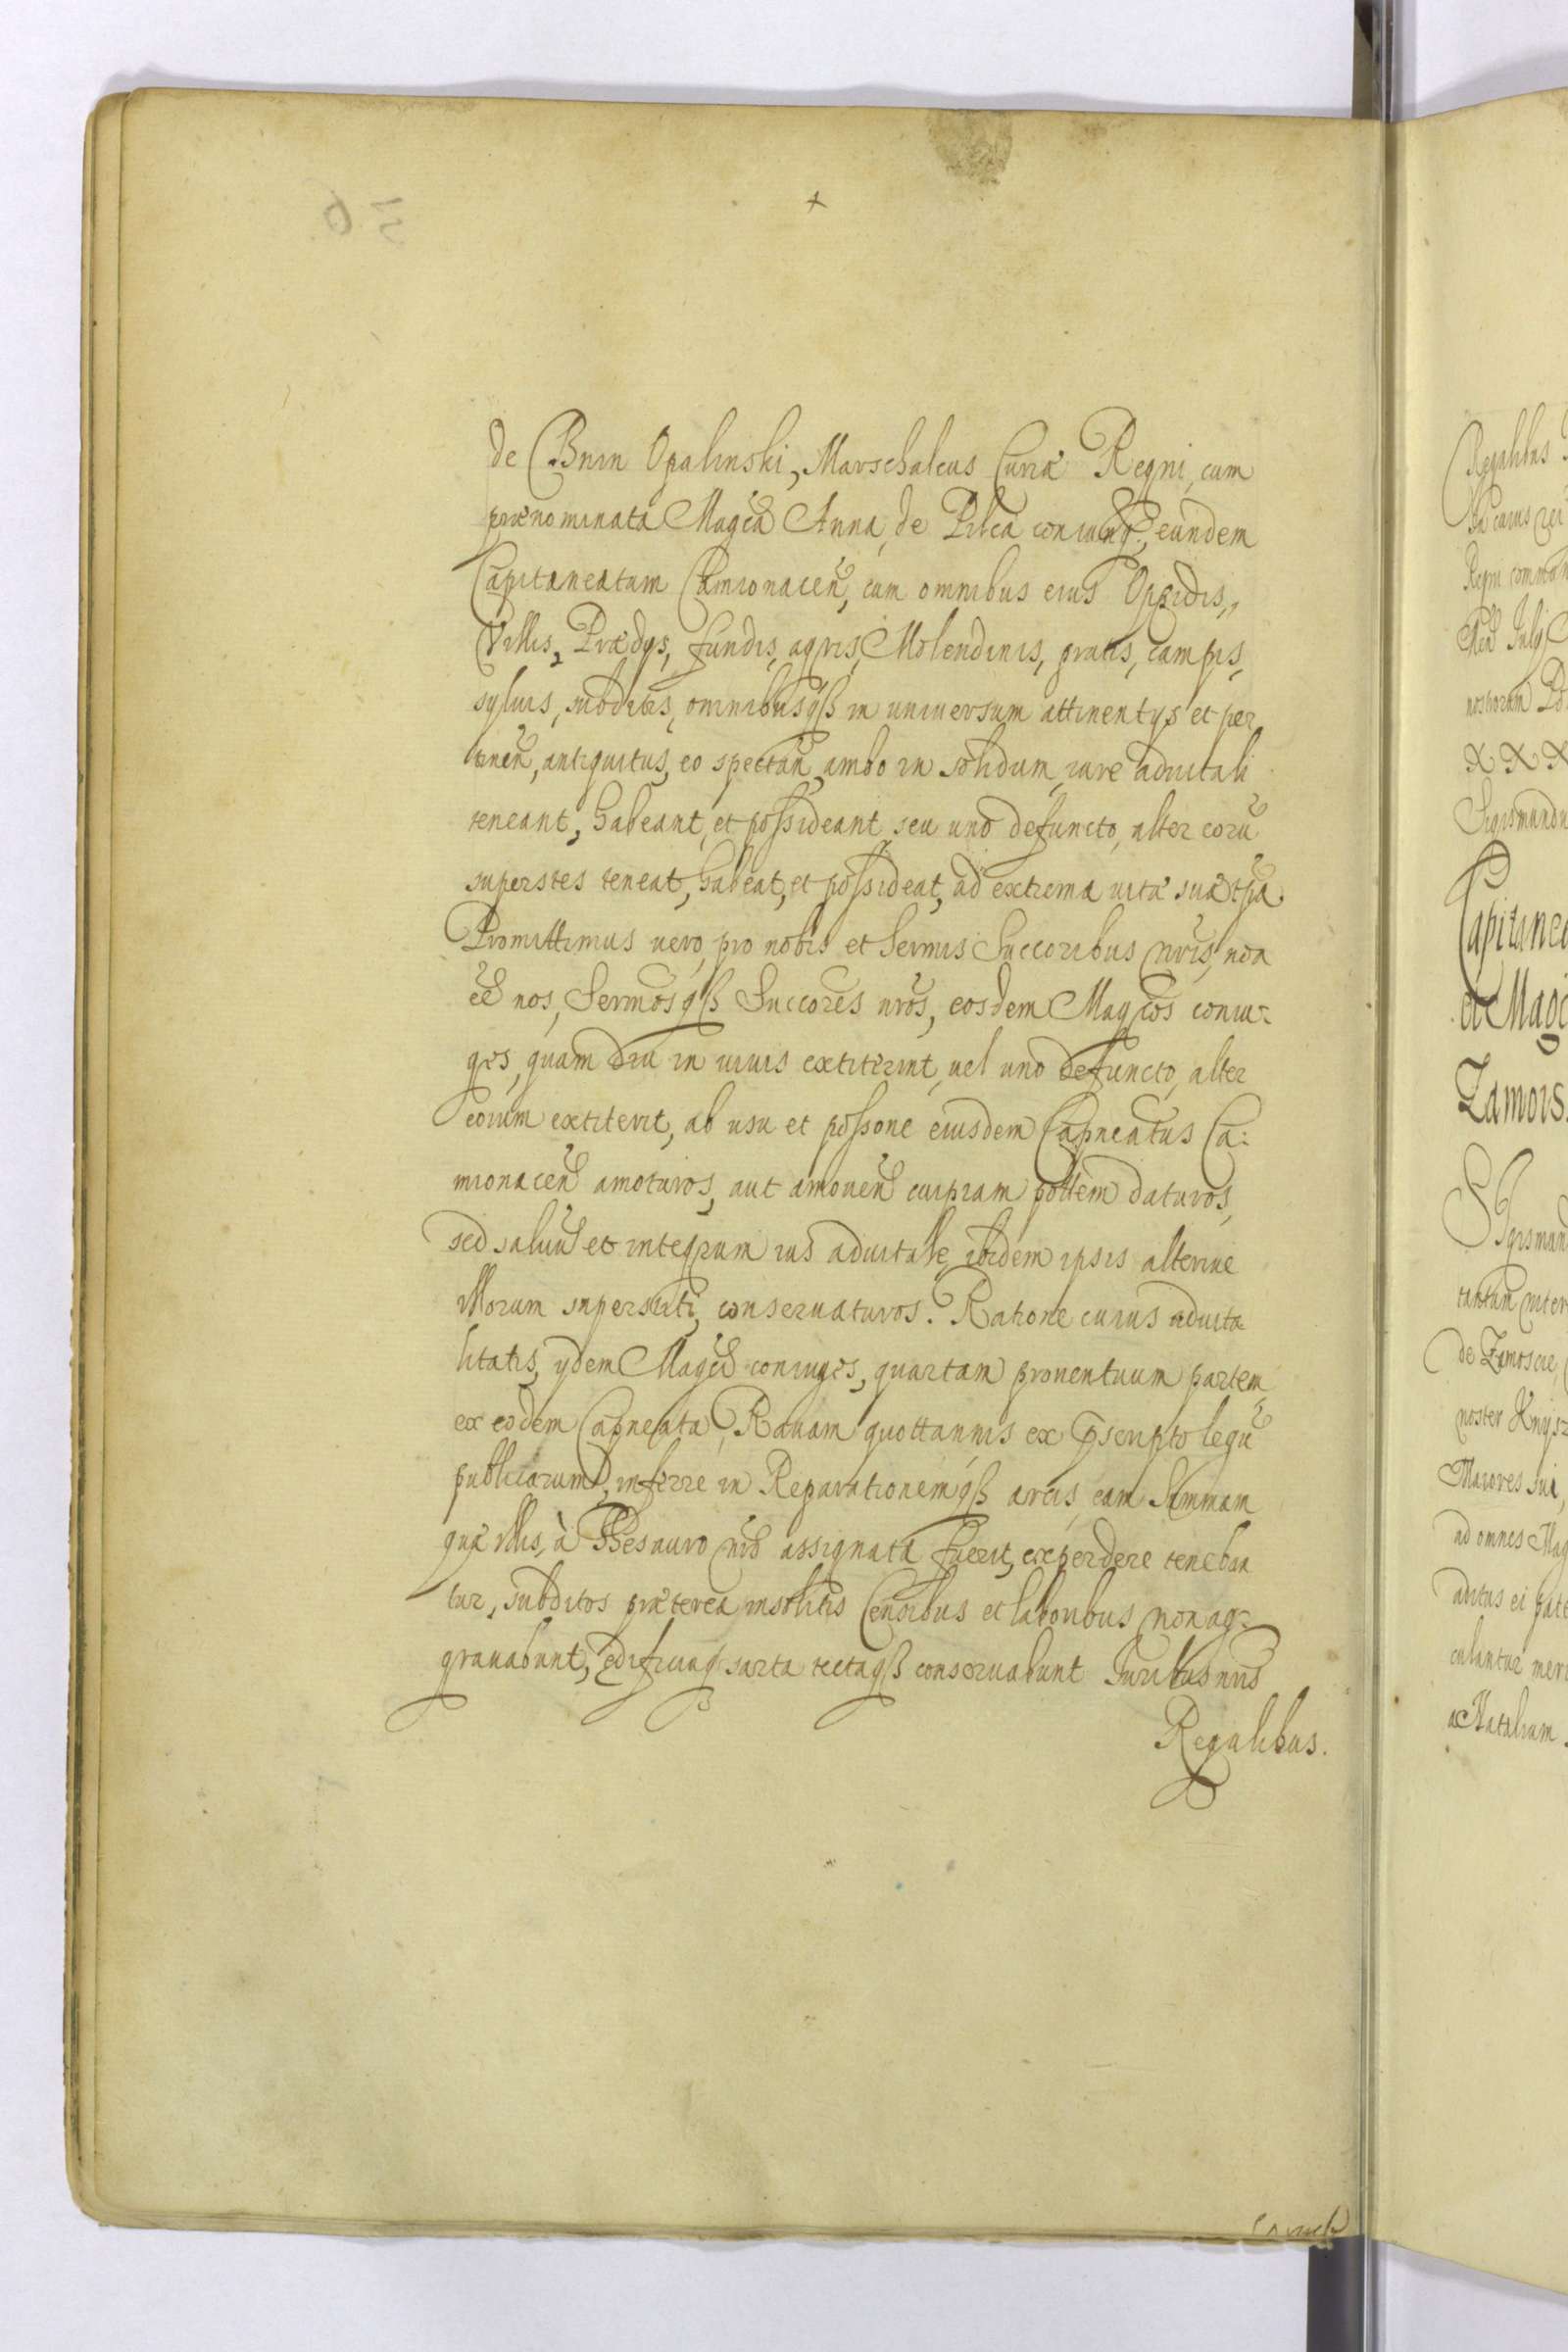 de Bnin Opalinski, Marschalcus Curiæ Regni, cum
prænominata Magcã Anna, de Pilca coniung., eundem
Capitaneatum Camionacen̄, cum omnibus eius Oppidis,
Villis, Prædys, fundis, agris, Molendinis, pratis, campis,
syluis, subditis, omnibusqß in uniuersum attinentys et per
tinen̄, antiquitus, eo spectan̄, ambo in solidum, iure aduitali
teneant, habeant, et possideant, seu uno defuncto, alter eorū
superstes teneat, habeat, et possideat, ad extrema uitæ suæ tp̄a.
Promittimus uero, pro nobis et Sermis Succoribus nr̄is, non
eē nos, Sermosqß Succores nr̄os, eosdem Magcos coniu-
ges, quam diu in uiuis extiterint, uel uno defuncto, alter
eorum extiterit, ab usu et possone eiusdem Capneatus Ca:
mionacen̄ amoturos, aut amouen̄ cuipiam pottem daturos,
sed saluū et integrum ius aduitale, ibidem ipsis alteriue
illorum superstiti, conseruaturos. Ratione cuius aduita
litatis, ydem Magci coniuges, quartam prouentuum partem
ex eodem Capneatu, Rauam quottannis ex pscripto legū
publicarum, inferre in Reparationemqß arcis, eam Summam
quæ illis, à Thesauro nr̄o assignata fuerit, expendere tenebun
tur, subditos præterea insolitis Censibus et laboribus non ag-
grauabunt, ædificiaq sarta tectaqß conseruabunt Iuribus nr̄is
Regalibus.
Regalibus
Regni
nostrorum
Sigismundu
Capitanea
et Magc
Zamois
Sigismun
de Zamoscie
noster Knysz
Maiores sui,
ad omnes Mag
aditus ei pate
culantur meri
ac Natalium